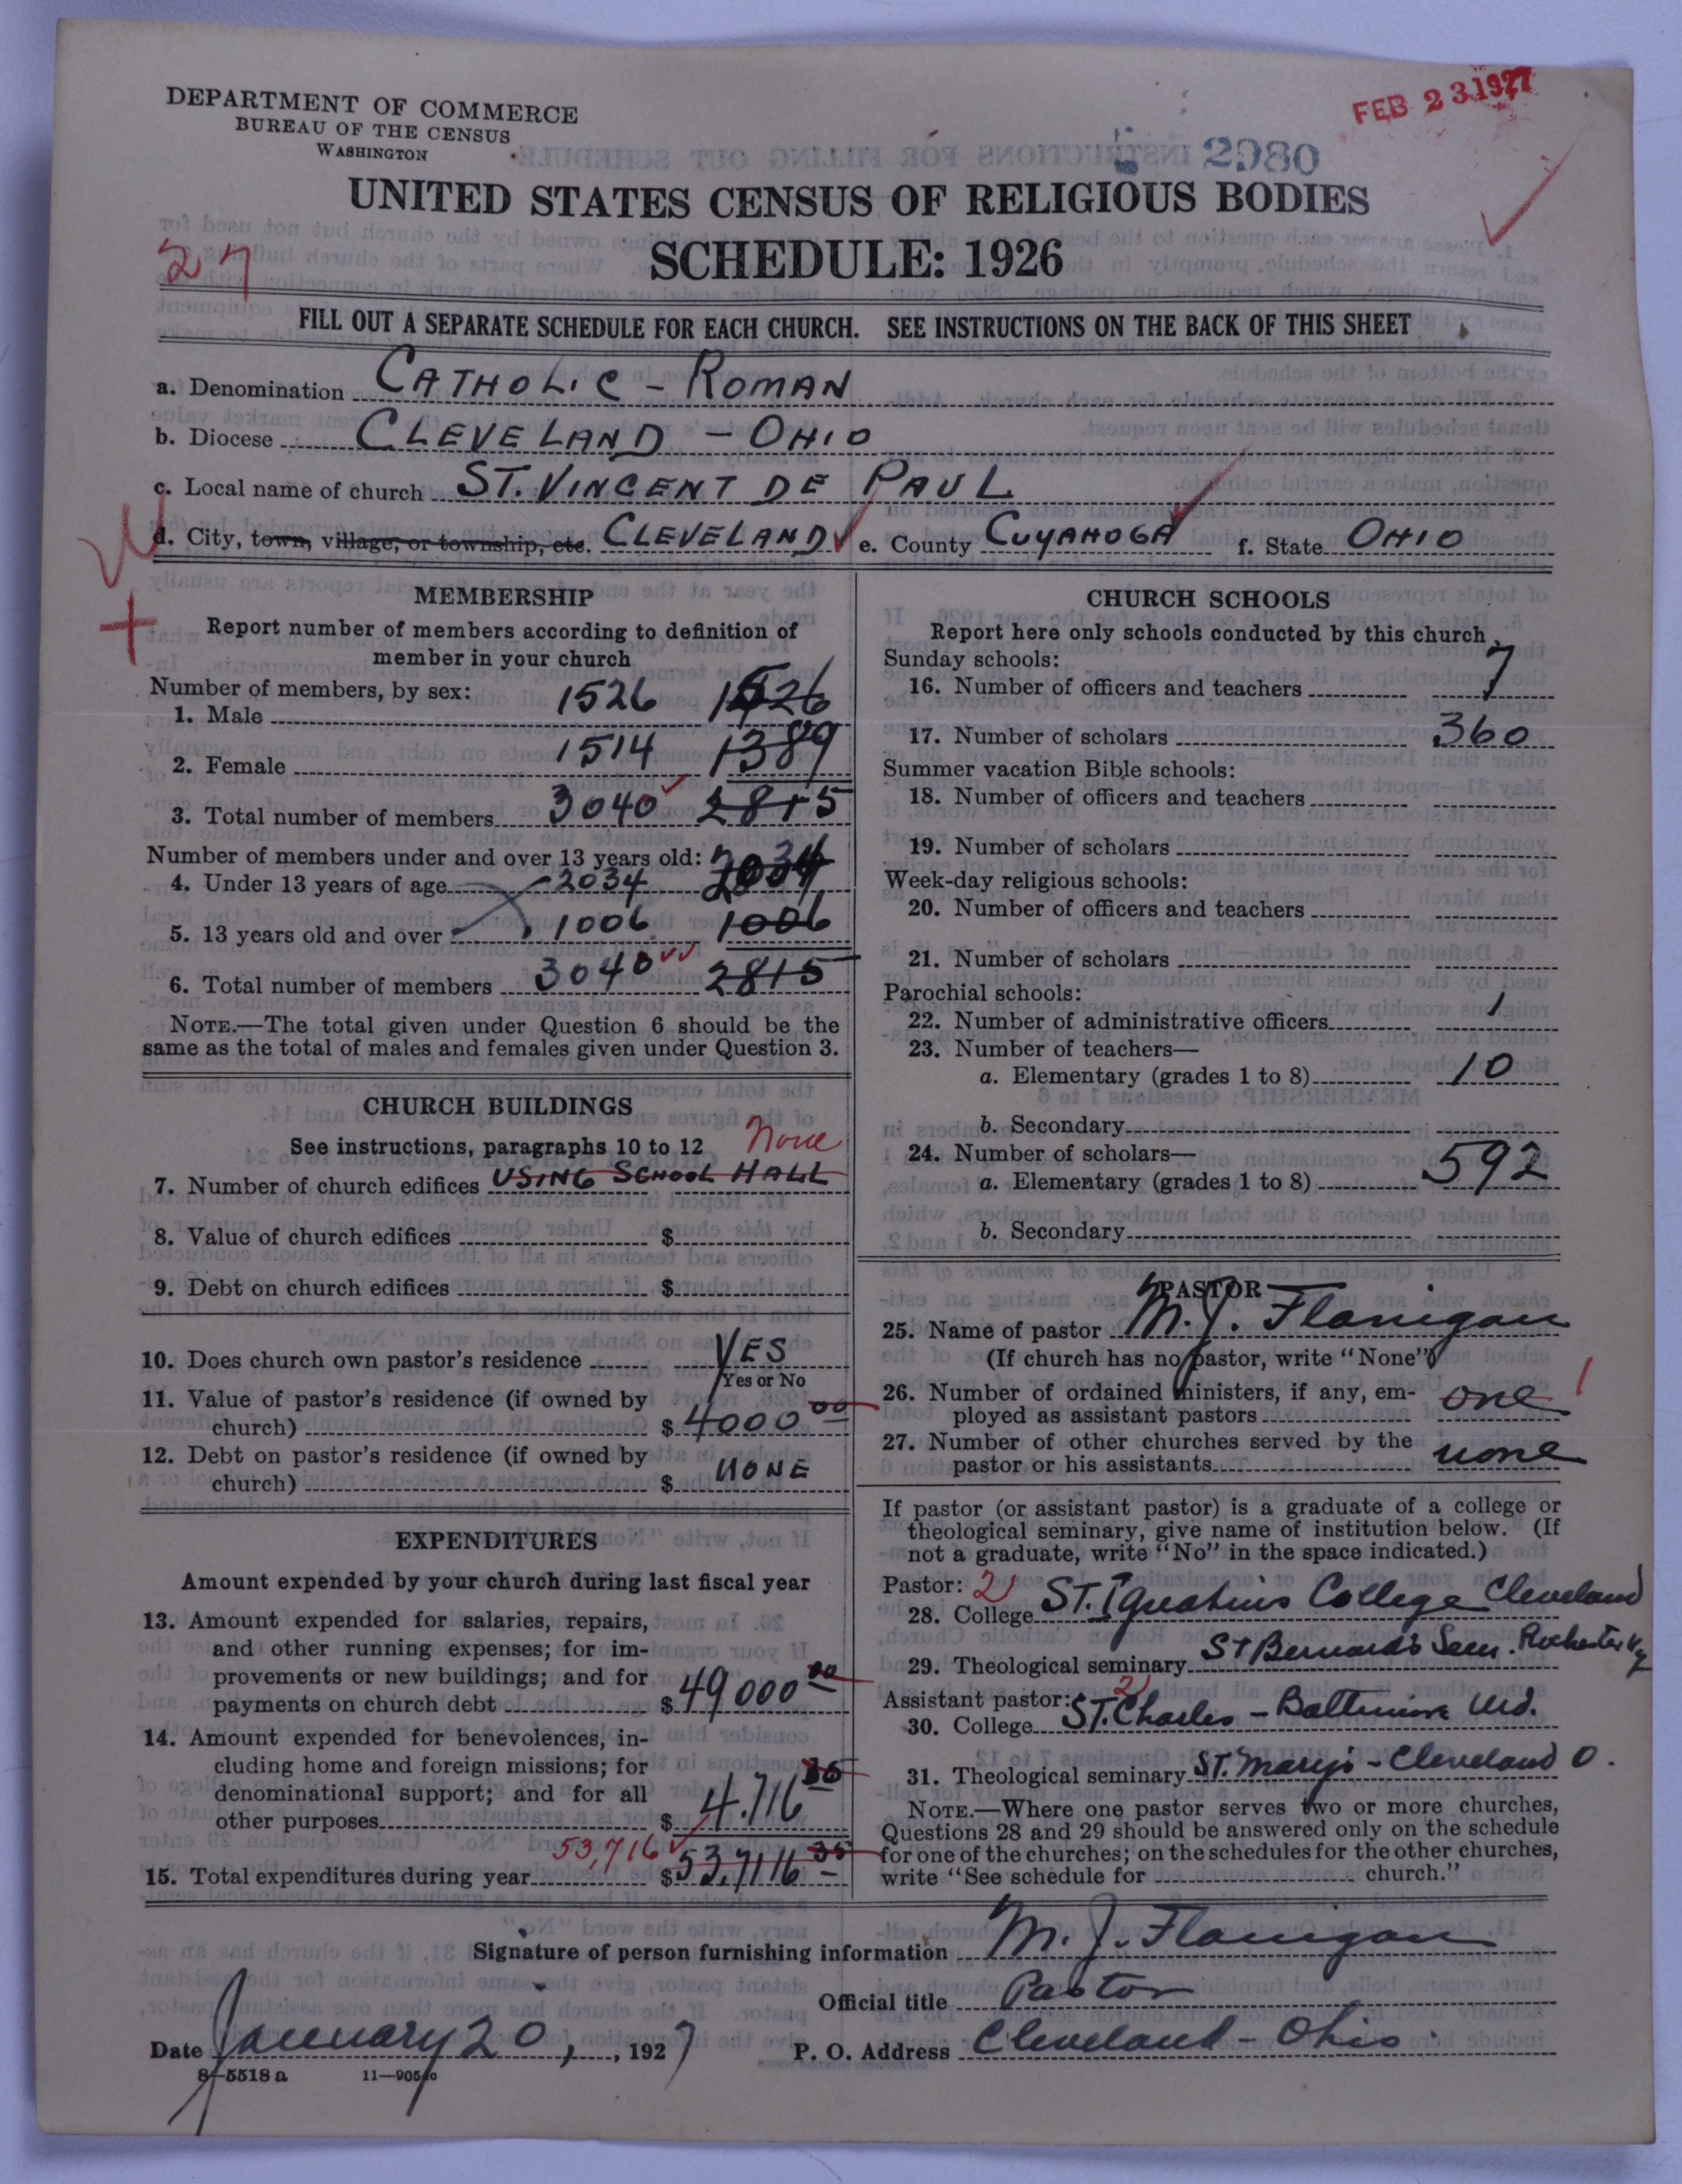 DEPARTMENT OF COMMERCE
BUREAU OF THE CENSUS
WASHINGTON
FEB 23 1927
2980
UNITED STATES CENSUS OF RELIGIOUS BODIES
SCHEDULE: 1926
27
FILL OUT A SEPARATE SCHEDULE FOR EACH CHURCH. SEE INSTRUCTIONS ON THE BACK OF THIS SHEET
a. Denomination CATHOLIC - ROMAN
b. Diocese CLEVELAND - OHIO
c. Local name of church ST. VINCENT DE PAUL
d. City, town, village, or township, etc. CLEVELAND e. County CUYAHOGA f. State OHIO
MEMBERSHIP
Report number of members according to definition of
member in your church
Number of members, by sex:
1. Male 1526
2. Female 1514 1389
3. Total number of members 3040 2815
Number of members under and over 13 years old:
4. Under 13 years of age 2034 2034
5. 13 years old and over 1006 1006
6. Total number of members 3040 2815
NOTE.—The total given under Question 6 should be the
same as the total of males and females given under Question 3.
CHURCH BUILDINGS
See instructions, paragraphs 10 to 12 None
7. Number of church edifices USING SCHOOL HALL
8. Value of church edifices $
9. Debt on church edifices $
10. Does church own pastor's residence YES
Yes or No
11. Value of pastor's residence (if owned by
church) $ 4000 00
12. Debt on pastor's residence (if owned by
church) $ NONE
EXPENDITURES
Amount expended by your church during last fiscal year
13. Amount expended for salaries, repairs,
and other running expenses; for im-
provements or new buildings; and for
payments on church debt $ 49000 00
14. Amount expended for benevolences, in-
cluding home and foreign missions; for
denominational support; and for all
other purposes $ 4.716 35
53,716
15. Total expenditures during year $ 53,716 35
CHURCH SCHOOLS
Report here only schools conducted by this church
Sunday schools:
16. Number of officers and teachers 7
17. Number of scholars 360
Summer vacation Bible schools:
18. Number of officers and teachers
19. Number of scholars
Week-day religious schools:
20. Number of officers and teachers
21. Number of scholars
Parochial schools:
22. Number of administrative officers 1
23. Number of teachers—
a. Elementary (grades 1 to 8) 10
b. Secondary
24. Number of scholars—
a. Elementary (grades 1 to 8) 592
b. Secondary
PASTOR
25. Name of pastor M. J. Flanigan
(If church has no pastor, write "None")
26. Number of ordained ministers, if any, em-
ployed as assistant pastors one 1
27. Number of other churches served by the
pastor or his assistants none
If pastor (or assistant pastor) is a graduate of a college or
theological seminary, give name of institution below. (If
not a graduate, write "No" in the space indicated.)
Pastor: 2
28. College ST. Ignatius College Cleveland
29. Theological seminary St Bernard's Sem. Rochester
Assistant pastor: 2
30. College ST. Charles - Baltimore Md.
31. Theological seminary ST. Mary's - Cleveland O.
NOTE.—Where one pastor serves two or more churches,
Questions 28 and 29 should be answered only on the schedule
for one of the churches; on the schedules for the other churches,
write "See schedule for church."
Signature of person furnishing information M. J. Flanigan
Official title Pastor
Date January 20, 1927 P. O. Address Cleveland - Ohio
8—5518 a